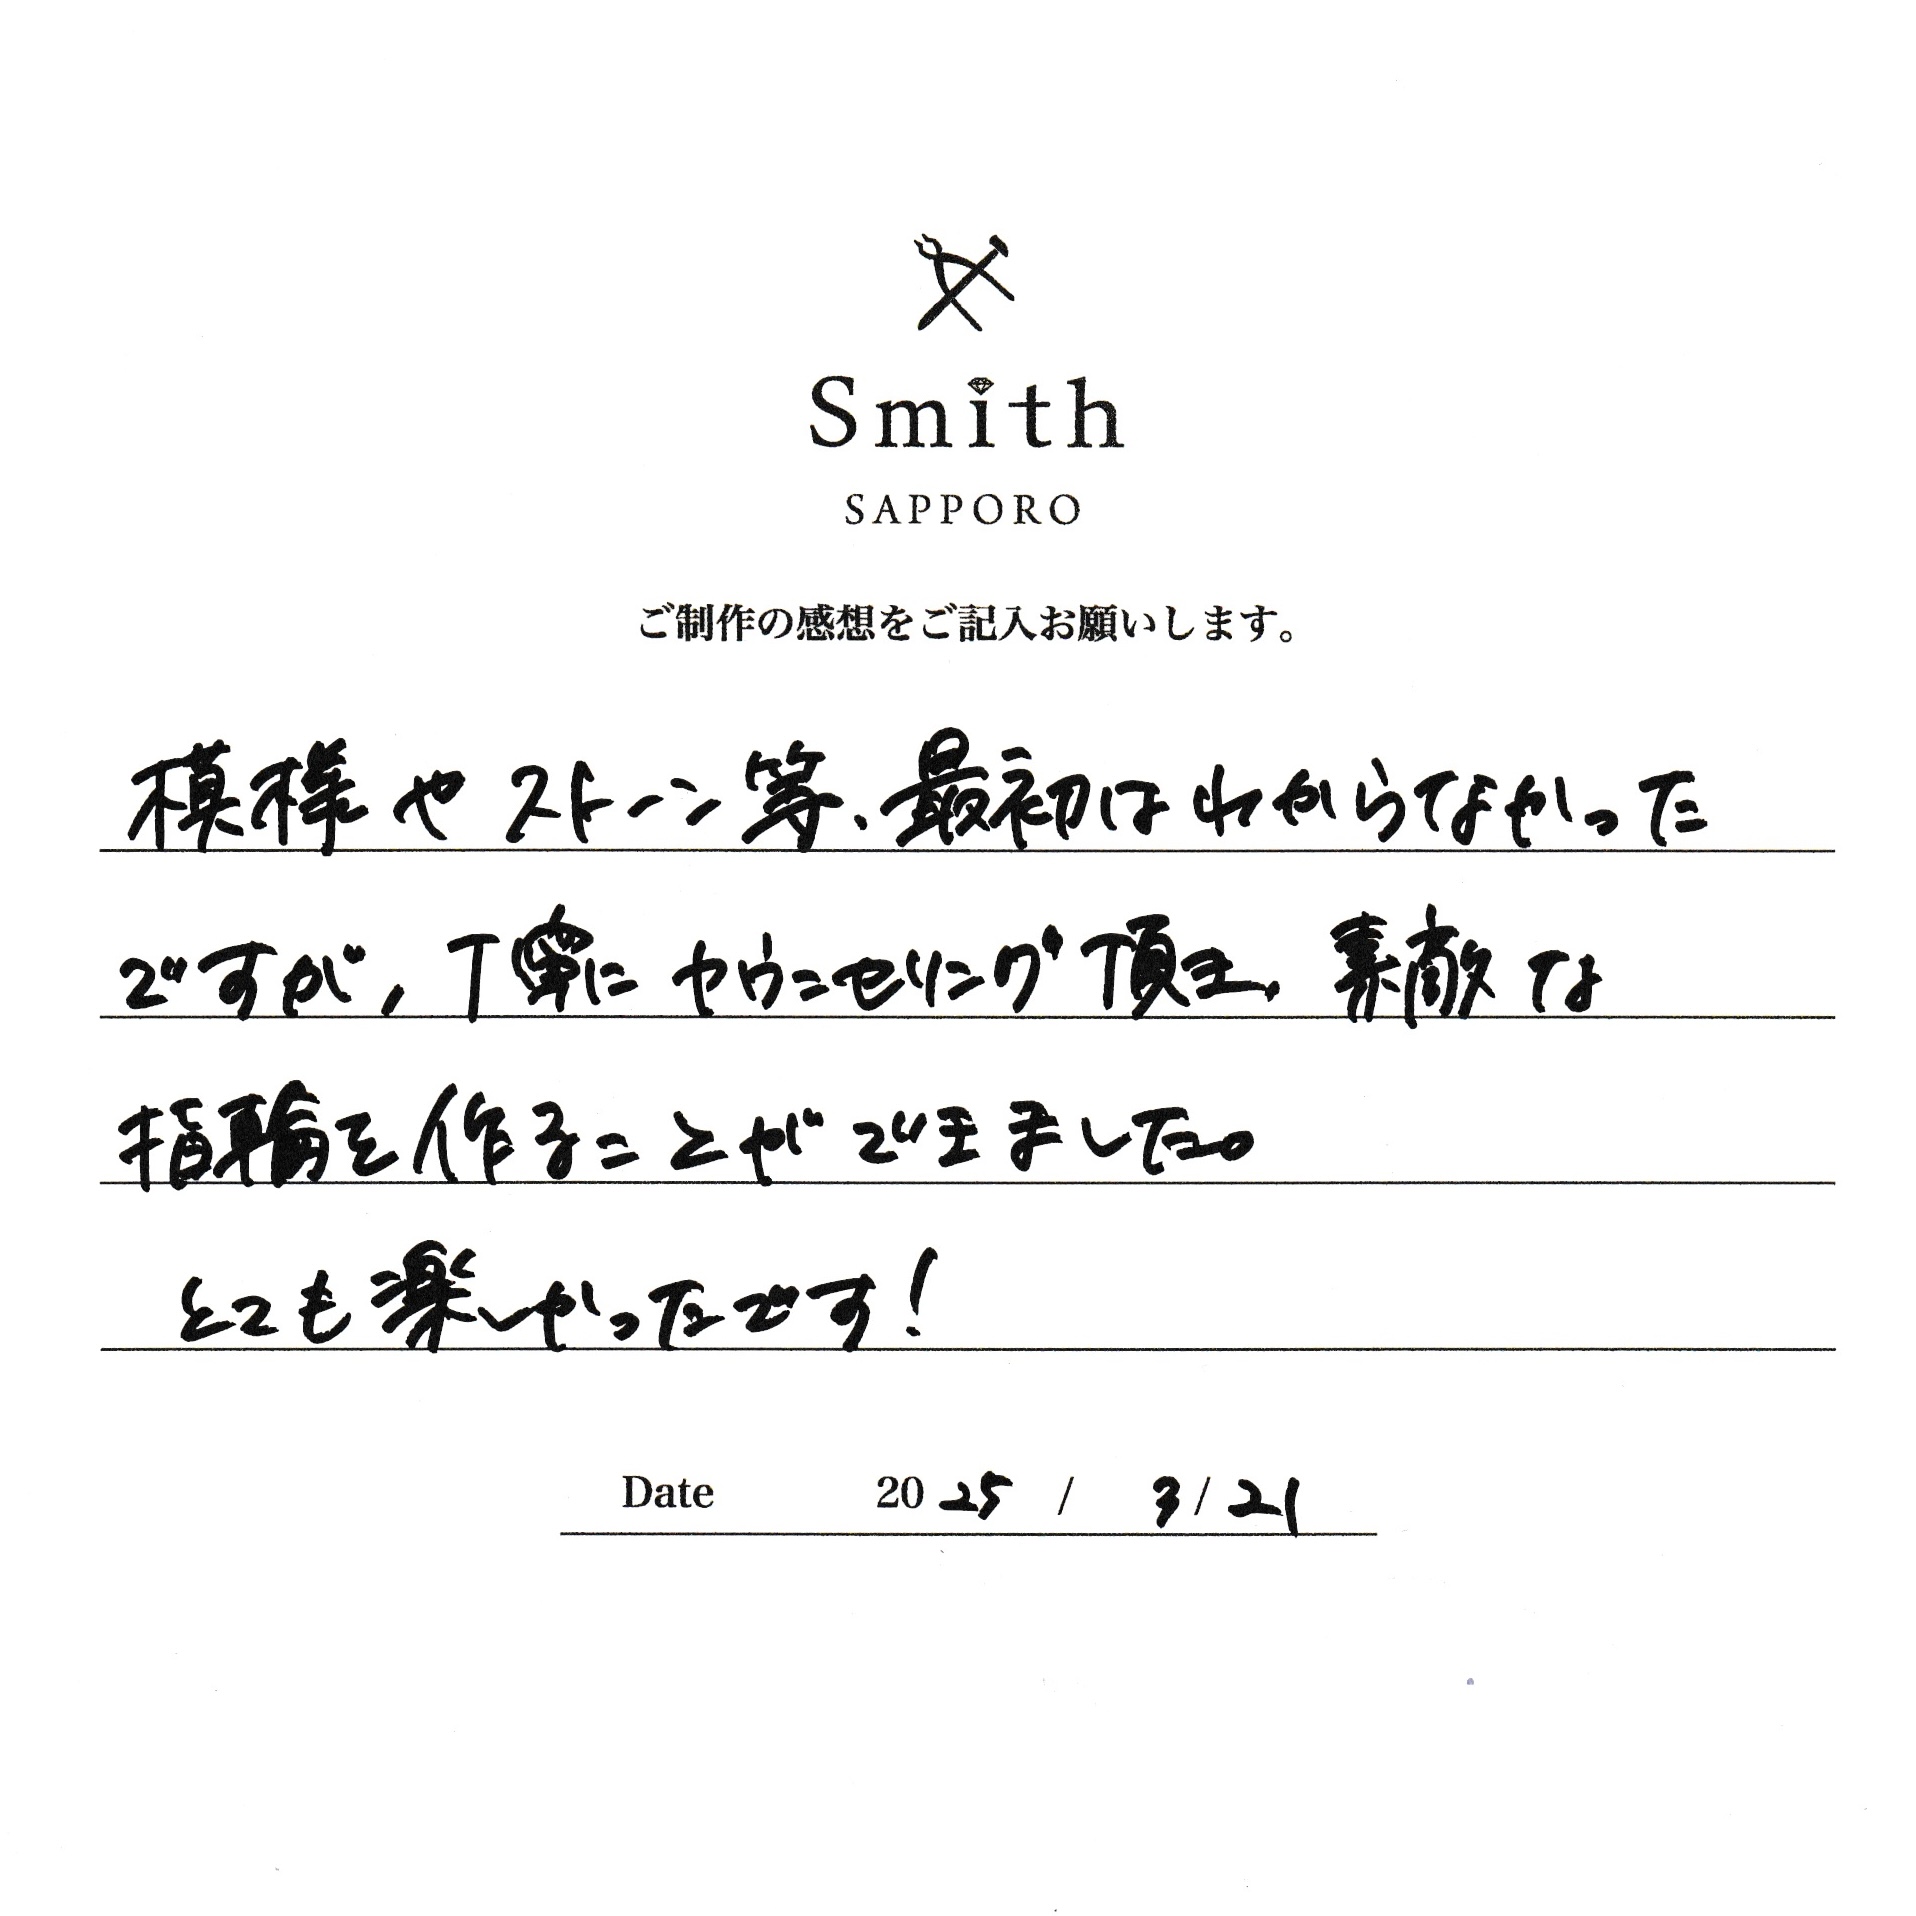 Smith
SAPPORO
ご制作の感想をご記入お願いします。
模様やストーン等、最初はわからなかった
ですが、丁寧にカウンセリング頂き、素敵な
指輪を作ることができました。
とても楽しかったです!
Date 2025 / 3/21